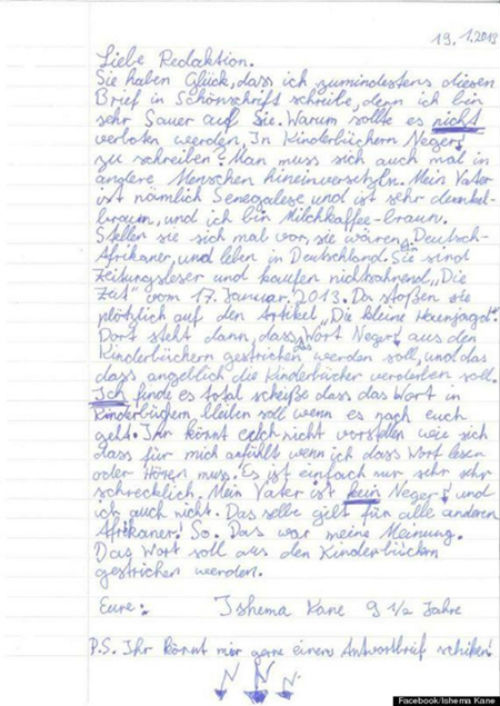 19.1.2013
Liebe Redaktion.
Sie haben Glück, dass ich zumindestens diesen
Brief in Schönschrift schreibe, denn ich bin
sehr Sauer auf Sie. Warum sollte es nicht
verboten werden, In Kinderbüchern Neger!
zu schreiben? Man muss sich auch mal in
andere Menschen hineinversetzen. Mein Vater
ist nämlich Senegalese und ist sehr dunkel-
braun, und ich bin Milchkaffee-braun.
Stellen sie sich mal vor, sie wären Deutsch-
Afrikaner, und leben in Deutschland. Sie sind
Zeitungsleser und kaufen nichtsahnend „Die
Zeit" vom 17. Januar. 2013. Da stoßen sie
plötzlich auf den Artikel „Die kleine Hexenjagd".
Dort steht dann, dass das Wort Neger! aus den
Kinderbüchern gestrichen werden soll, und das
dass angeblich die Kinderbücher verdorben soll.
Ich finde es total scheiße dass das Wort in
Kinderbüchern bleiben soll wenn es nach euch
geht. Ihr könnt euch nicht vorstellen wie sich
dass für mich anfühlt wenn ich dass Wort lesen
oder Hören muss. Es ist einfach nur sehr sehr
schrecklich. Mein Vater ist kein Neger! und
ich auch nicht. Das selbe gilt für alle anderen
Afrikaner! So. Das war meine Meinung.
Das Wort soll aus den Kinderbüchern
gestrichen werden.
Eure: Ishema Kane 9 1/2 Jahre
P.S. Ihr könnt mir gerne einen Antwortbrief schicken!
N N N.
Facebook/Ishema Kane